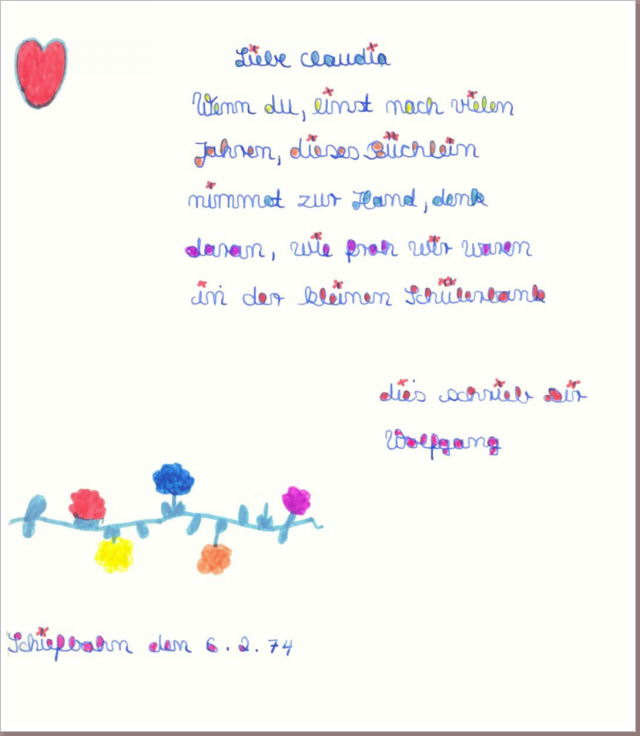 Liebe Claudia
Wenn du, einst nach vielen
Jahren, dieses Büchlein
nimmst zur Hand, denk
daran, wie froh wir waren
in der kleinen Schülerbank
dies schrieb dir
Wolfgang
Schiefbahn den 6.2.74